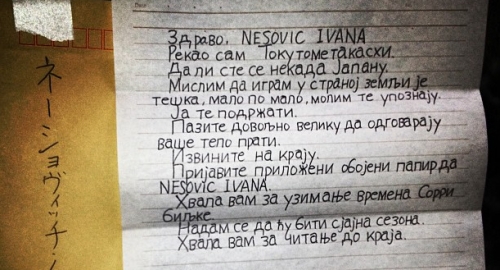 ネーショヴィッチ・
Здраво, NESOVIC IVANA
Рекао сам Токутометакасхи.
Да ли сте се некада Јапану.
Мислим да играм у страној земљи је
тешка, мало по мало, молим те упознају.
Ја те подржати.
Пазите довољно велику да одговарају
ваше тело прати.
Извините на крају.
Пријавите приложени обојени папир да
NESOVIC IVANA.
Хвала вам за узимање времена Сорри
биљке.
Надам се да ћу бити сјајна сезона.
Хвала вам за читање до краја.